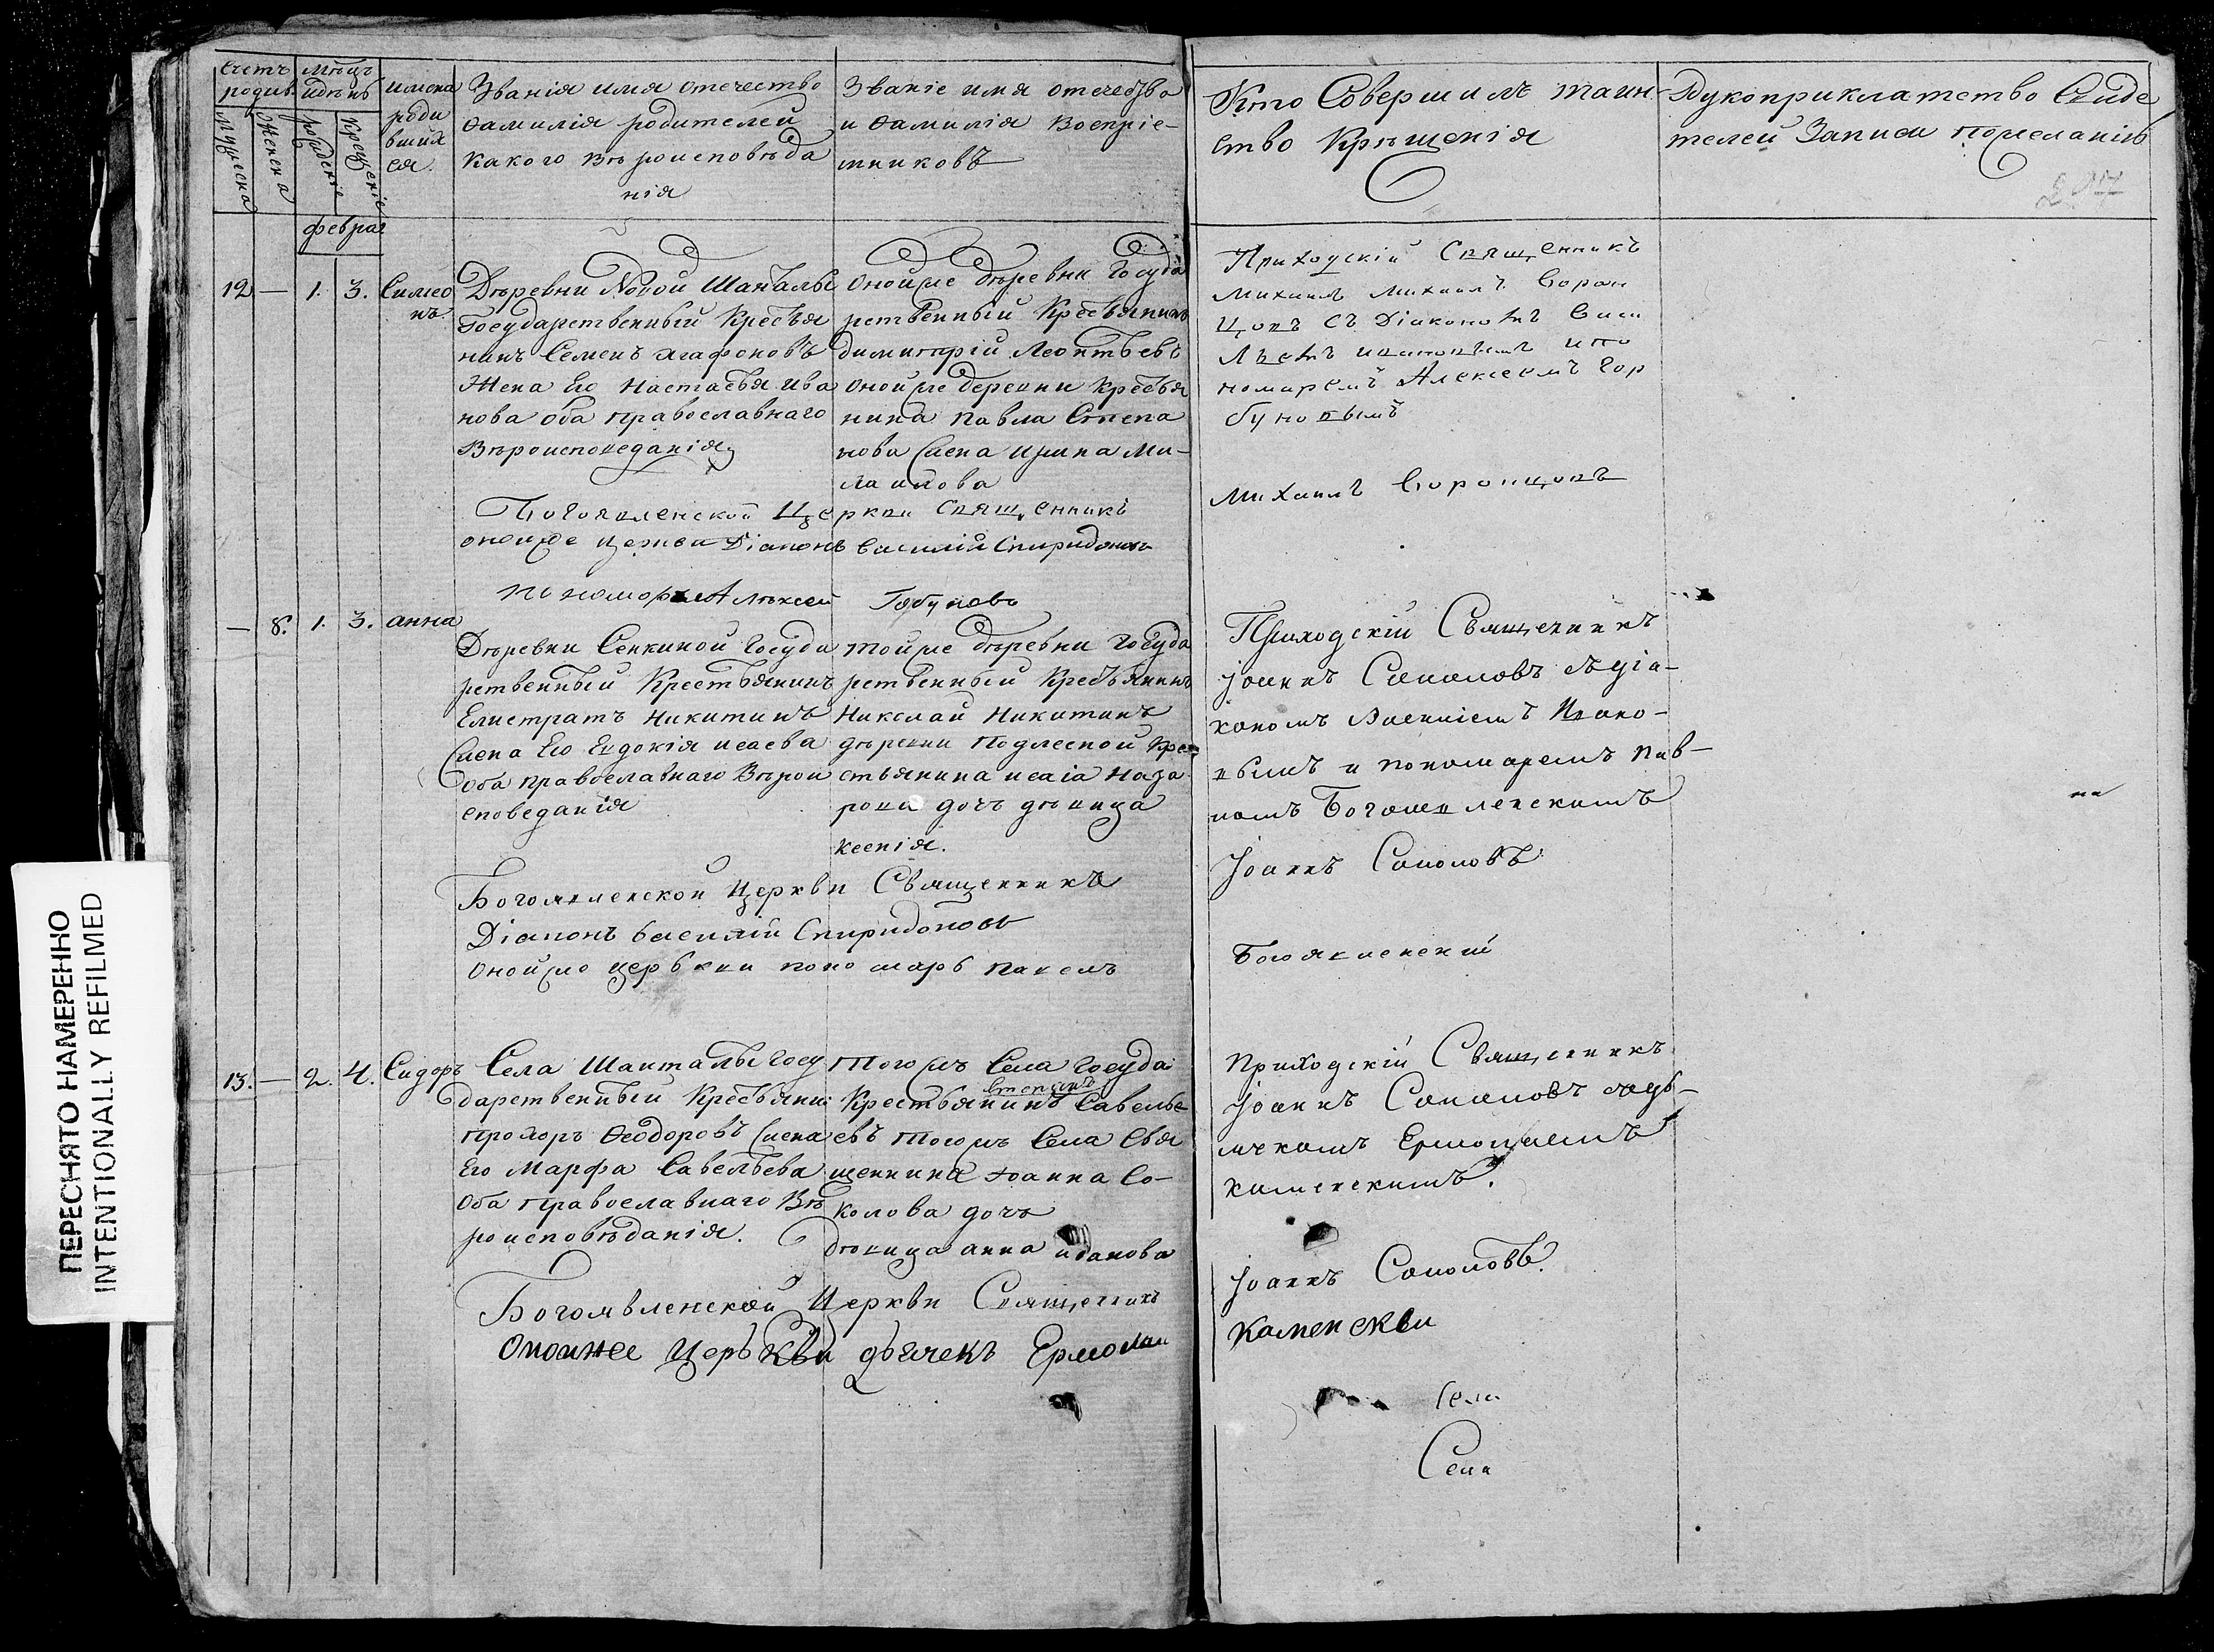 Счетъ родив
Мужеска
Женска
Мѣсяцъ и день
рожденіе
Крещеніе
имена
роди
вшихъ
ся.
Званія имя отечество
Фамилія родителей
какого вѣроисповѣда
нія
Званіе имя отечество
и Фамилія Воспріе-
мниковъ
Кто Совершилъ таин-
ство Крѣщенія
Рукоприклатство Свиде
телей Записи пожеланію
февра:
12 — 1. 3. Симео
нъ
Дѣревни Новой Шанталы
Государственный Крестья
нинъ Семенъ Агафоновъ
Жена Его Настасья ива
нова оба православнаго
Вѣроисповеданія
Оной же дѣревни Госуда
рственный Крестьянинъ
димитрій Леонтьевъ
Оной же деревни крестья
нина Павла Степа
нова Жена Ирина Ми-
хаилова
Приходскій Священникъ
Михаилъ Михаилъ Ворон
цовъ съ Діакономъ Васи
номаремъ Алексеемъ Гор
буновымъ
Богоявленской Церкви Священникъ
Михаилъ Воронцовъ
оной же церкви Діаконъ Василій Спиридоновъ
пономорь Алѣксей Горбуновъ
— 8. 1. 3. анна
Дѣревни Сенкиной Госуда
рственный Крестьянинъ
Елистратъ Никитинъ
Жена Его Евдокія исаева
Оба православнаго Вѣрои
споведанія
Той же дѣревни Госуда
рственный Крестьянинъ
Николай Никитинъ
дѣревни Подлесной Кре
стьянина исаіа Наза
рова дочь дѣвица
ксенія.
Приходскій Священникъ
Іоаннъ Соколовъ съ діа-
кономъ Василіемъ Ивано-
вымъ и пономаремъ Пав-
ломъ Богоявленскимъ
Богоявленской Церкви Священникъ
Іоаннъ Соколовъ
Діаконъ Василій Спиридоновъ
Оной же церкви пономарь Павелъ
Богоявленскій
13. — 2. 4. Сидоръ
Села Шанталы госу
дарственный Крестьянин:
Прохоръ Ѳеодоровъ Жена
Его Марфа Савельева
Оба Православнаго Вѣ
роисповѣданія.
Того жъ Села Госуда:
Крестьянинъ Савелье
въ того жъ Села Свя
щенника Іоанна Со-
колова дочь
дѣвица анна иванова
Приходскій Священникъ
Іоаннъ Соколовъ съ дь-
ячкомъ Ермолаемъ
каменскимъ.
Богоявленской Церкви Священникъ
Іоаннъ Соколовъ.
Оноижее Церъкви дьячекъ Ермолаи
Каменскви
Села
Села
ПЕРЕСНЯТО НАМЕРЕННО
INTENTIONALLY REFILMED